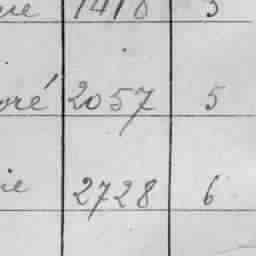 1418 5
oré 2057 5
ie 2728 6